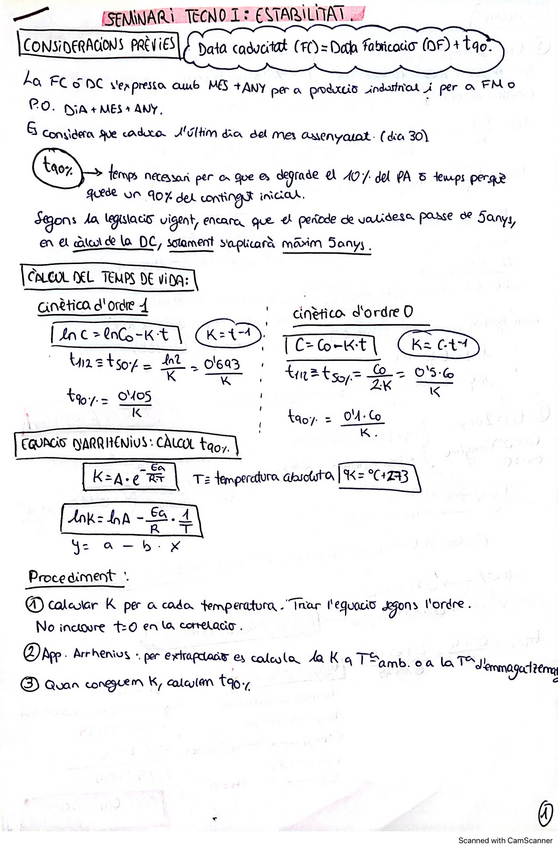 SEMINARI TECNO I: ESTABILITAT.
CONSIDERACIONS PRÈVIES
Data caducitat (FC) = Data Fabricació (DF) + t90.
La FC ó DC s'expressa amb MES + ANY per a producció industrial i per a FM o
P.O. DIA + MES + ANY.
Es considera que caduca l'últim dia del mes assenyalat. (dia 30)
t90% → temps necessari per a que es degrade el 10% del PA ó temps perquè
quede un 90% del contingut inicial.
Segons la legislació vigent, encara que el període de validesa passe de 5anys,
en el càlcul de la DC, solament s'aplicarà màxim 5anys.
CÀLCUL DEL TEMPS DE VIDA:
Cinètica d'ordre 1
ln C = ln C0 - K·t
K = t-1
t1/2 ≡ t50% = ln2/K = 0'693/K
t90% = 0'105/K
cinètica d'ordre 0
C = C0 - K·t
K = C·t-1
t1/2 ≡ t50% = C0/2·K = 0'5·C0/K
t90% = 0'1·C0/K.
EQUACIÓ D'ARRHENIUS: CÀLCUL t90%
K = A·e^-Ea/R·T
T ≡ temperatura absoluta
ºK = ºC + 273
lnK = lnA - Ea/R · 1/T
y = a - b · x
Procediment:
① Calcular K per a cada temperatura. Triar l'equació segons l'ordre.
No incloure t=0 en la correlació.
② App. Arrhenius: per extrapolació es calcula la K a Tª amb. o a la Tª d'emmagatzematge
③ Quan coneguem K, calculem t90%
①
Scanned with CamScanner